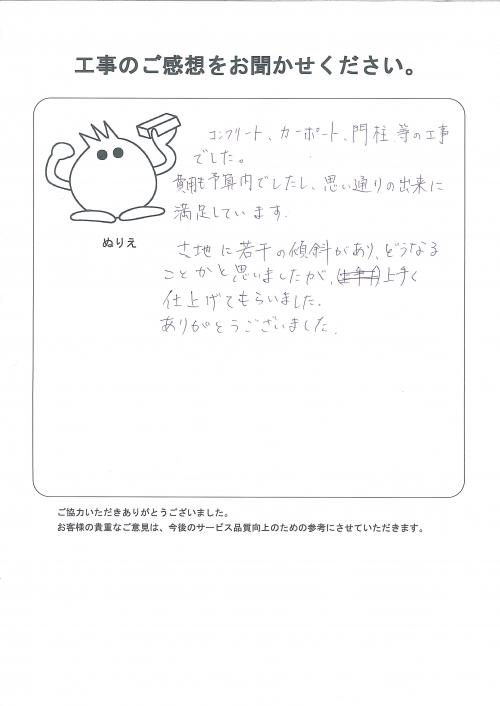 工事のご感想をお聞かせください。
コンクリート、カーポート、門柱 等の工事
でした。
費用も予算内でしたし、思い通りの出来に
満足しています.
ぬりえ
さ地に若干の傾斜があり、どうなる
ことかと思いましたが、上手く
仕上げてもらいました.
ありがとうございました.
ご協力いただきありがとうございました。
お客様の貴重なご意見は、今後のサービス品質向上のための参考にさせていただきます。